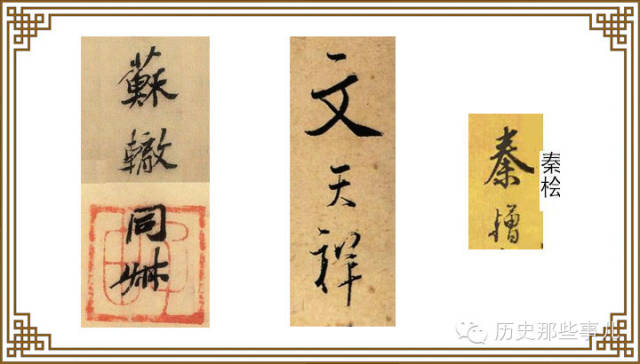 蘇轍同
文天祥
秦檜
秦桧
历史那些事儿